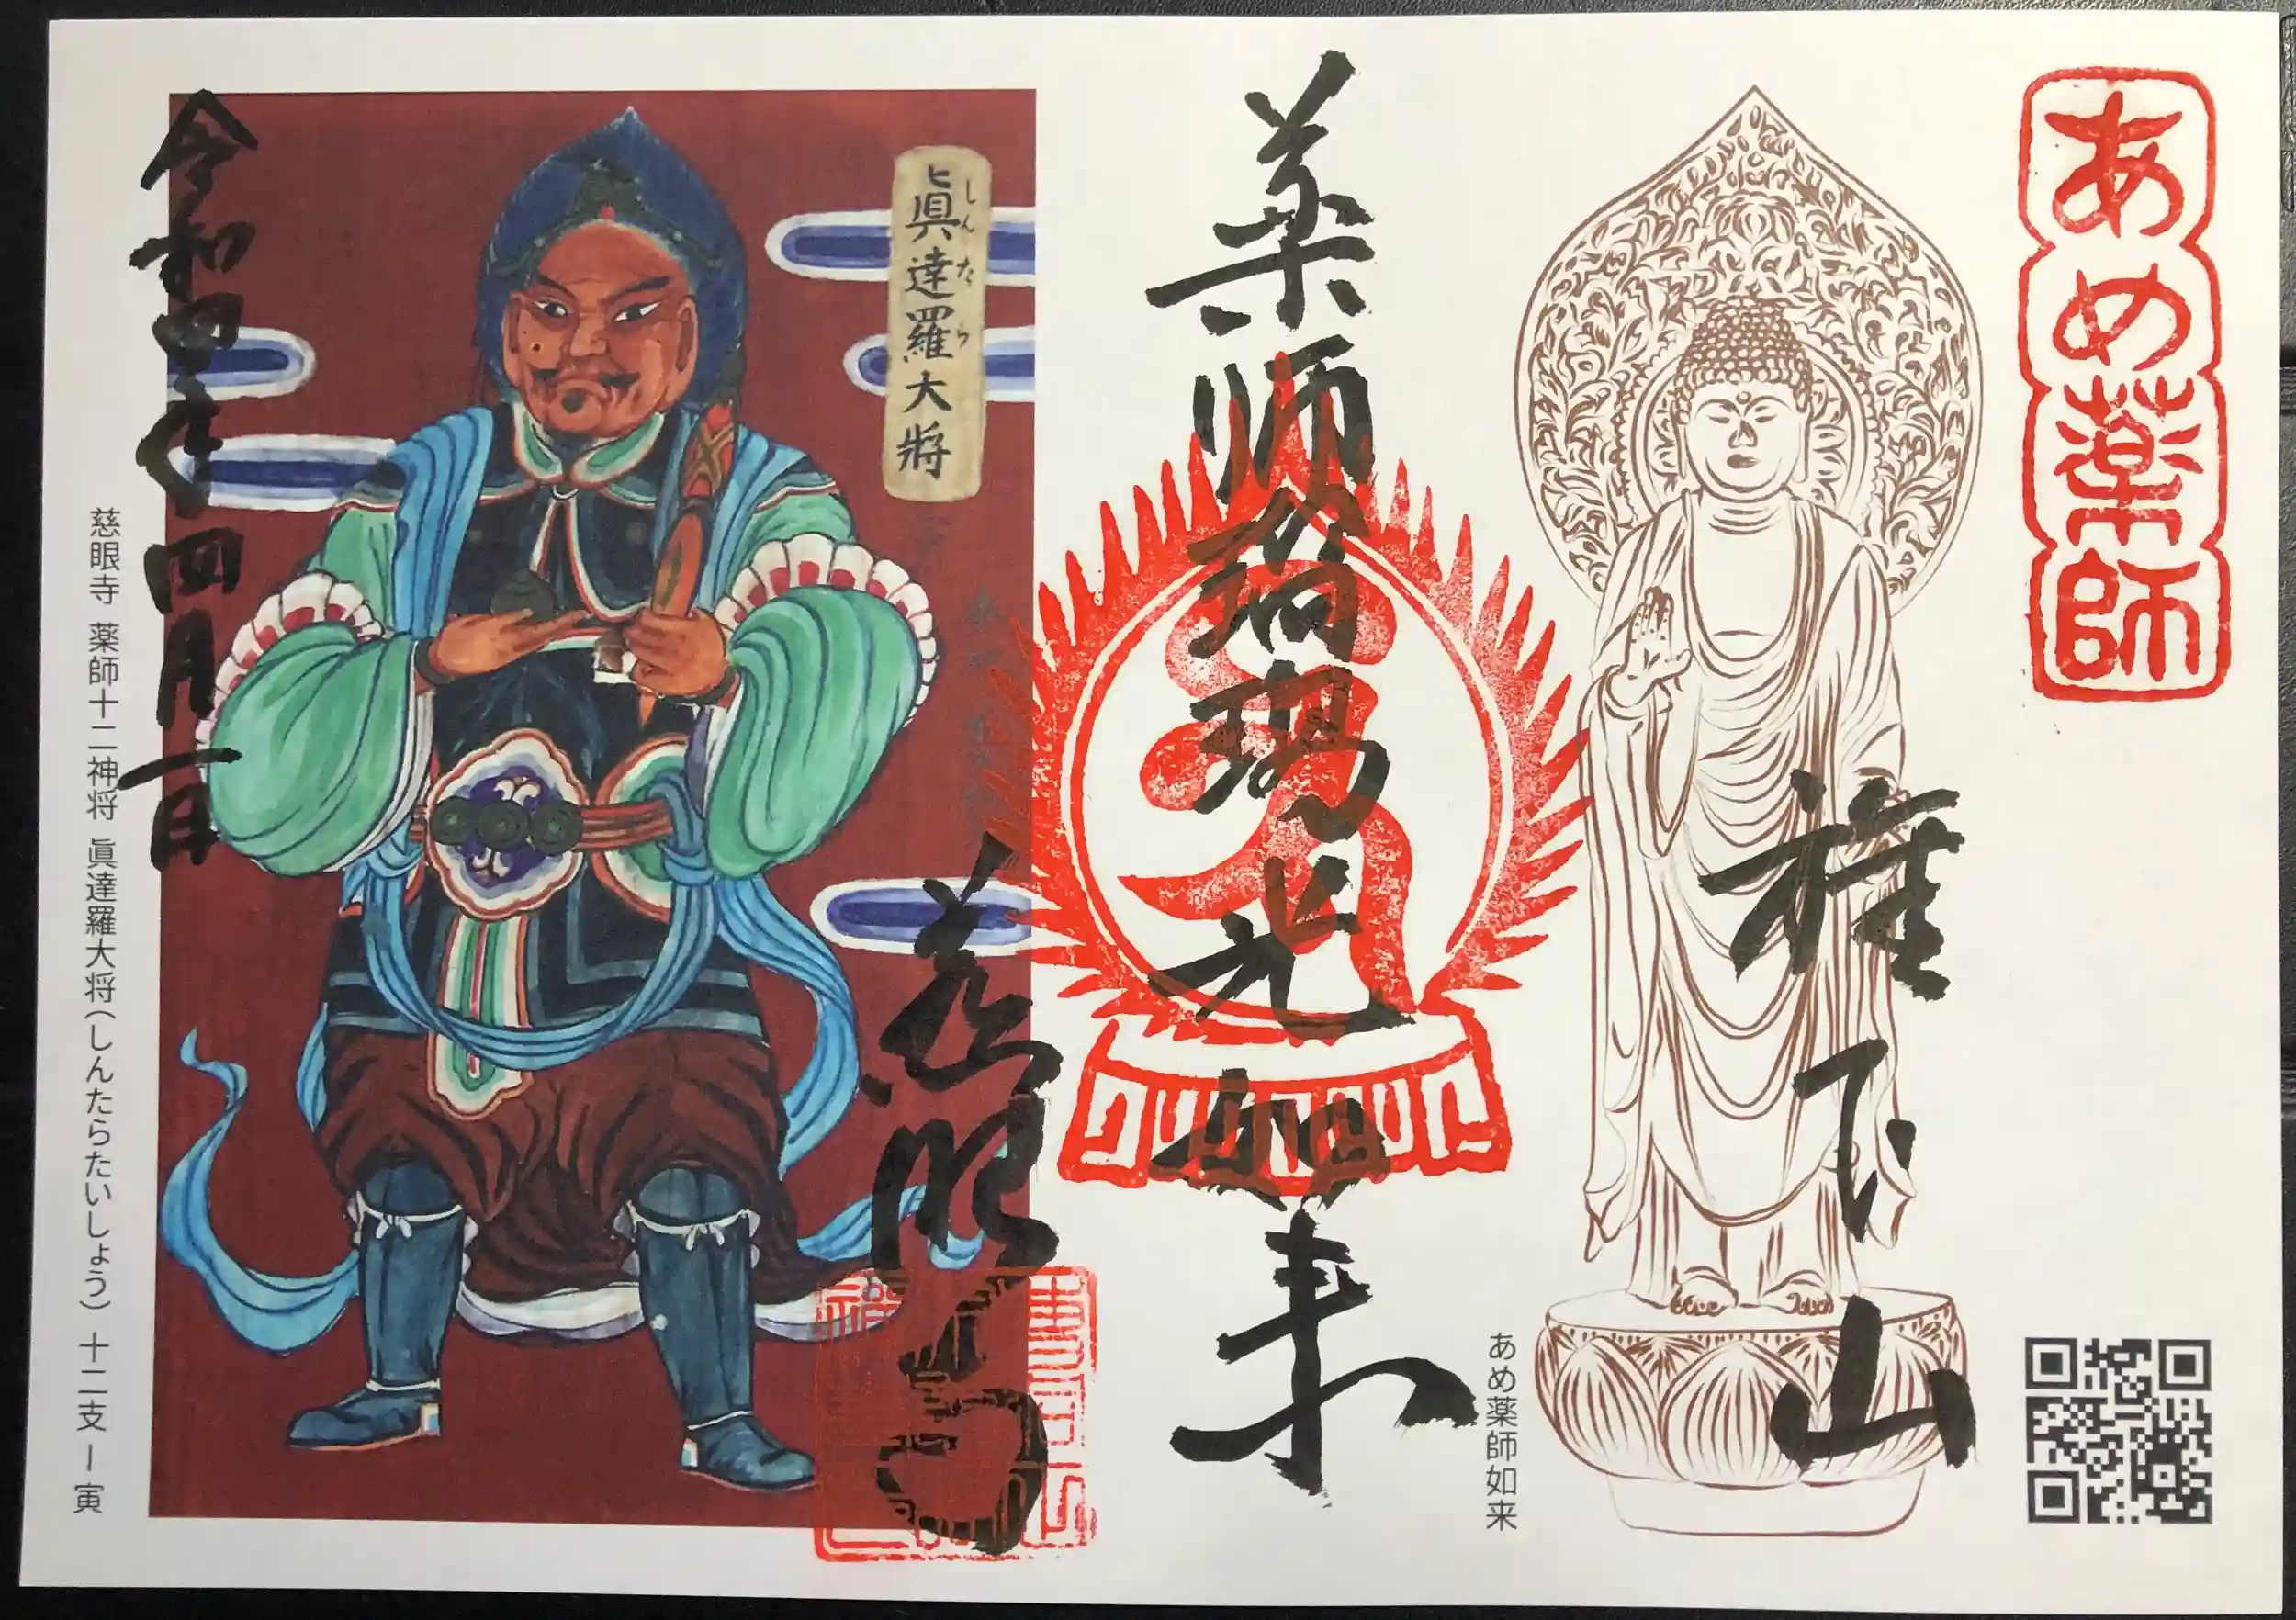 あめ薬師
権下山
あめ薬師如来
薬師瑠璃光如来
慈眼寺
眞達羅大将
しんたら
令和四年四月一日
慈眼寺 薬師十二神将 眞達羅大将(しんたらたいしょう) 十二支ー寅